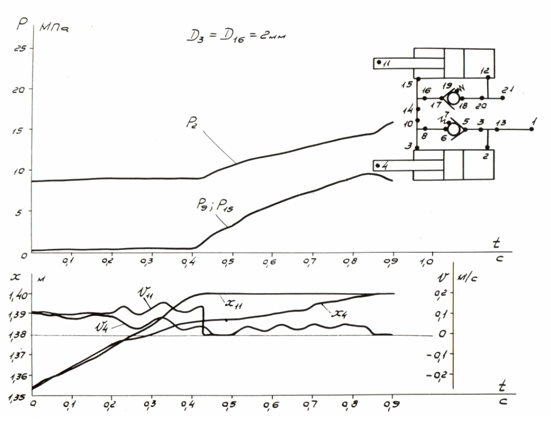 P МПа
D3 = D16 = 2мм
25
20
15
10
5
0
P2
P9; P15
0,1 0,2 0,3 0,4 0,5 0,6 0,7 0,8 0,9 1,0 t
c
11
12
15
19
16 17 18 20 21
14
10
7
8 6 5 3 13 1
3
4
2
x м
v м/с
1,40
1,39
1,38
1,37
1,36
1,35
v11
v4
x11
x4
0,2
0,1
0
-0,1
-0,2
0 0,1 0,2 0,3 0,4 0,5 0,6 0,7 0,8 0,9 t
c